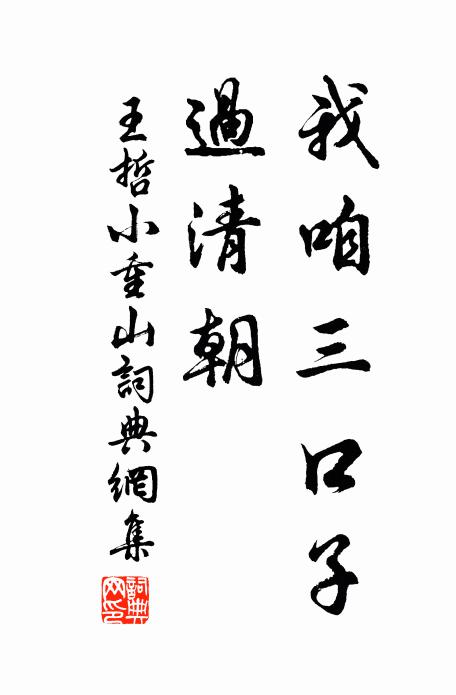 我咱三口子
過清朝
王哲小重山詞典網集
詞典网印